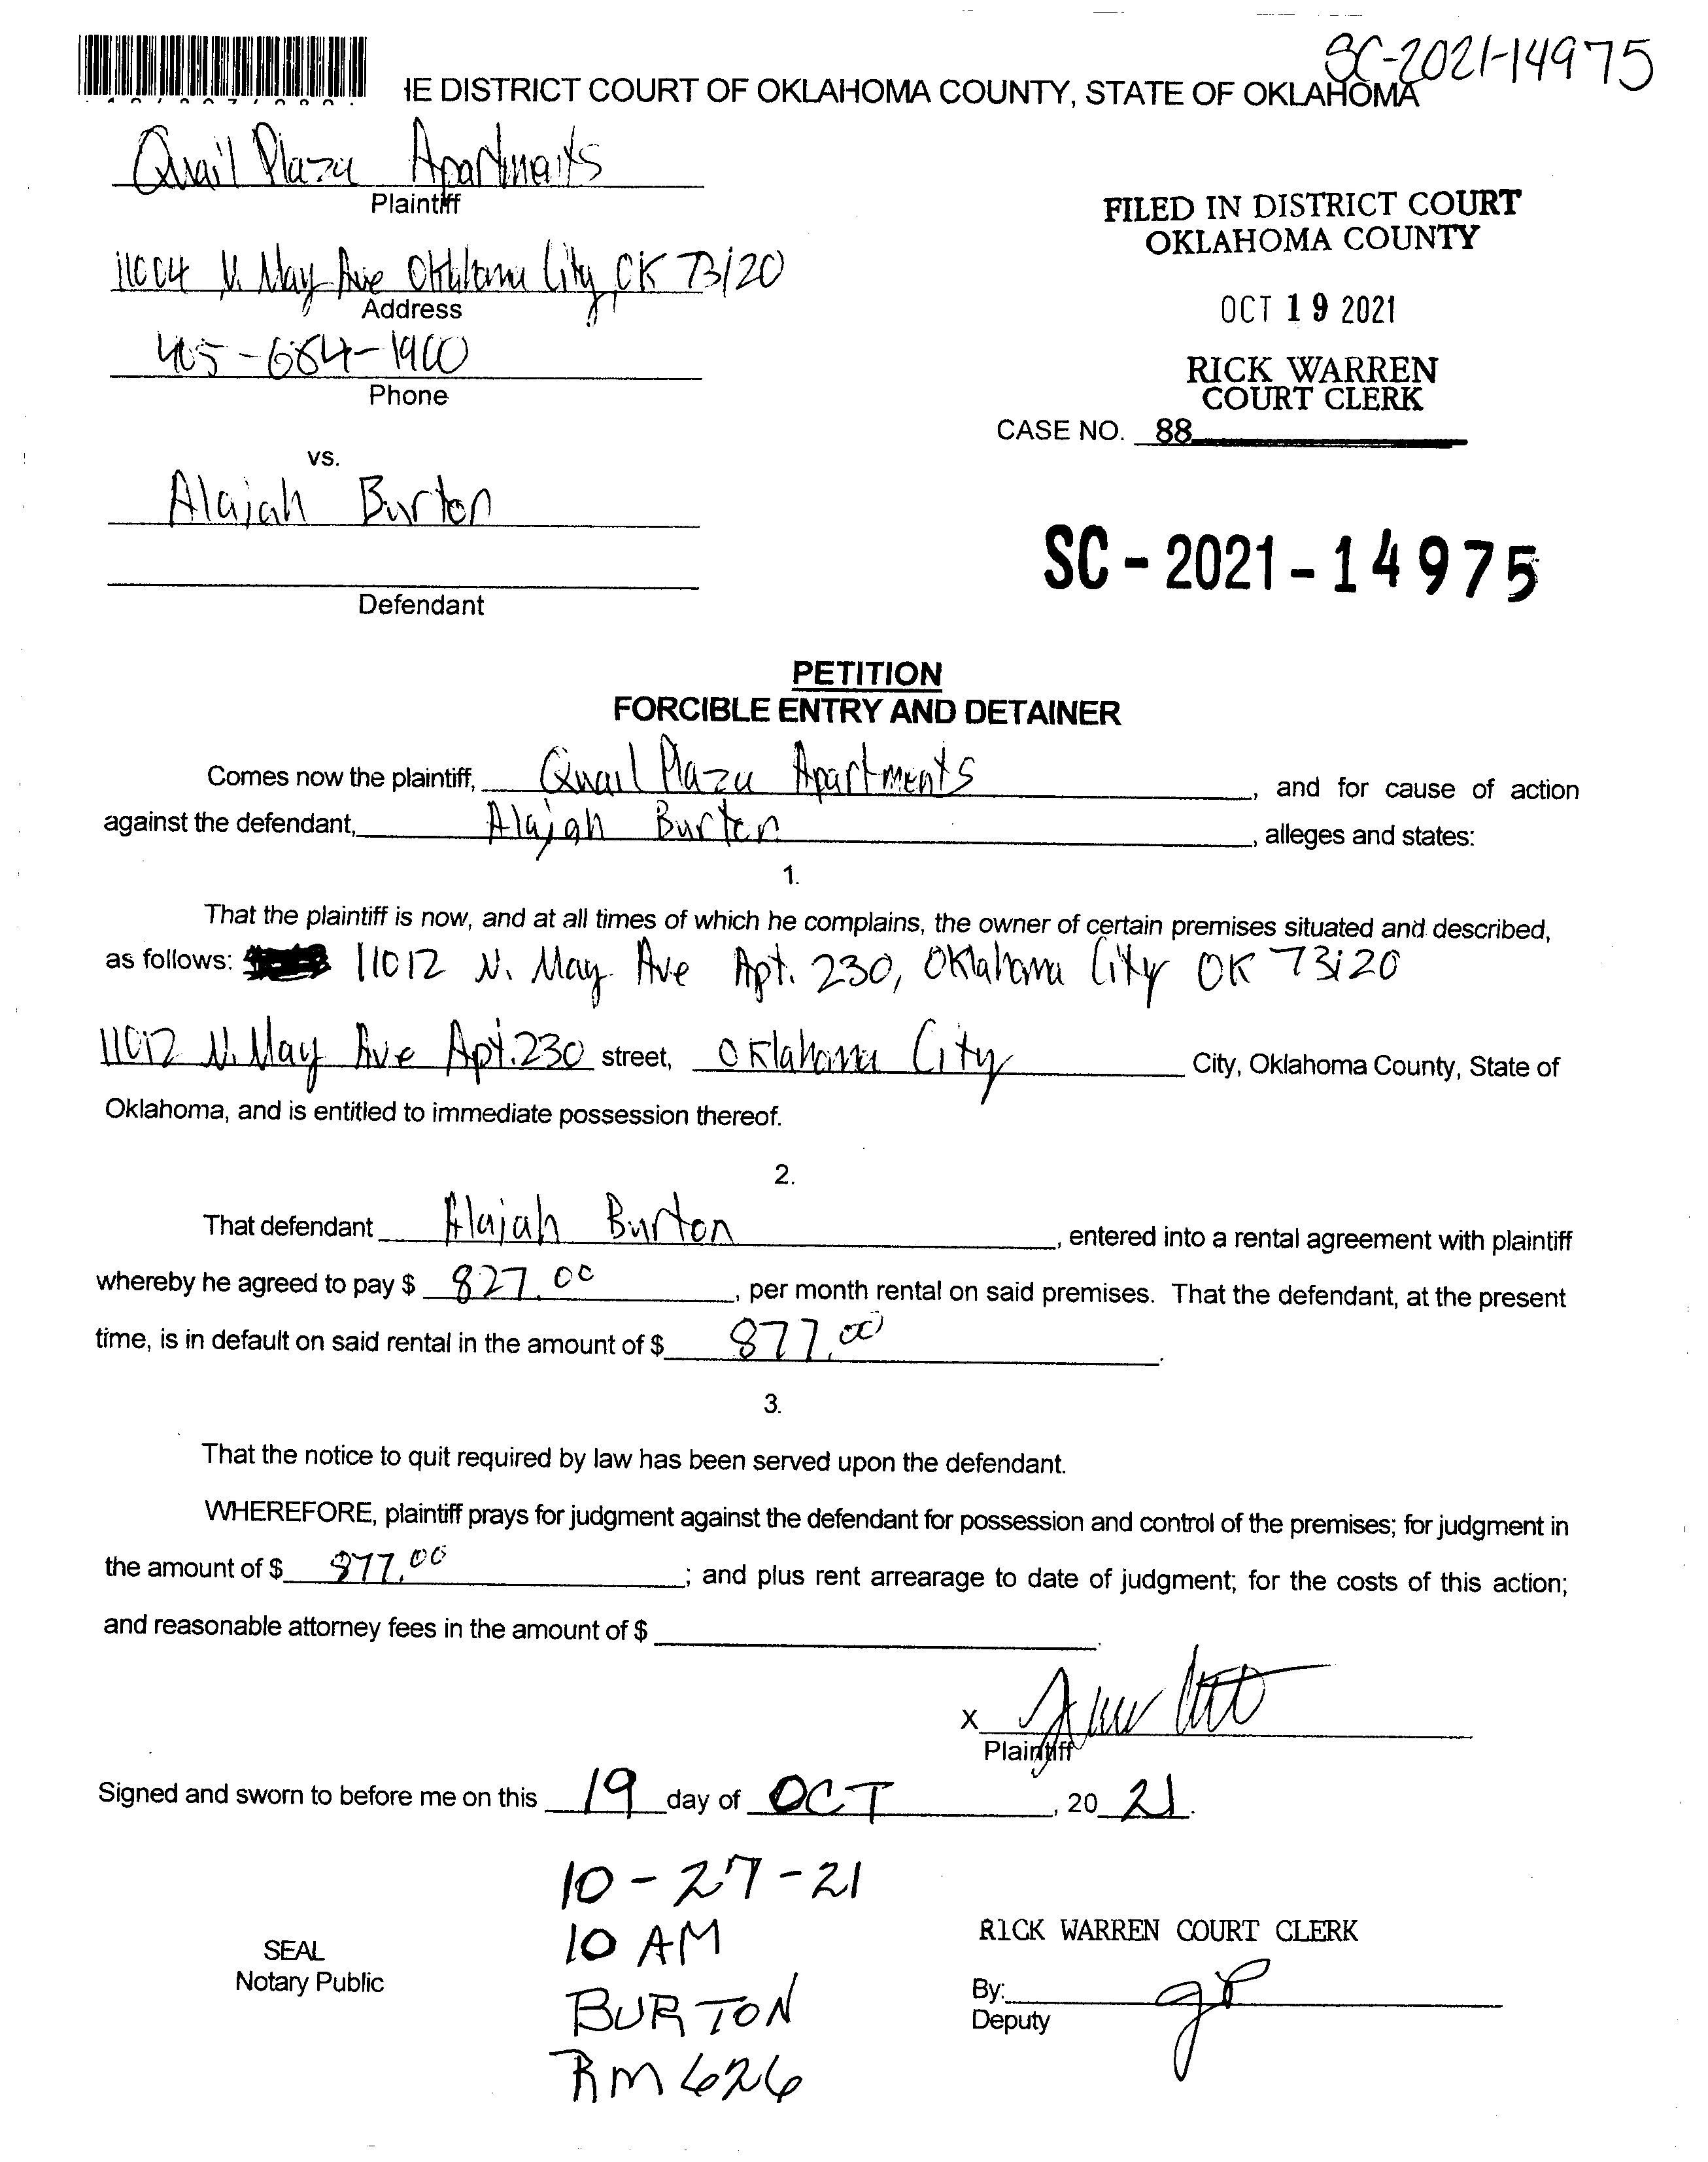 SC-2021-14975
IE DISTRICT COURT OF OKLAHOMA COUNTY, STATE OF OKLAHOMA
Quail Plaza Apartments
Plaintiff
11004 N. May Ave Oklahoma City, OK 73120
Address
405-684-1900
Phone
vs.
Alajah Burton
Defendant
FILED IN DISTRICT COURT
OKLAHOMA COUNTY
OCT 19 2021
RICK WARREN
COURT CLERK
CASE NO. 88
SC-2021-14975
PETITION
FORCIBLE ENTRY AND DETAINER
Comes now the plaintiff, Quail Plaza Apartments, and for cause of action
against the defendant, Alajah Burton, alleges and states:
1.
That the plaintiff is now, and at all times of which he complains, the owner of certain premises situated and described,
as follows: 11012 N. May Ave Apt. 230, Oklahoma City OK 73120
11012 N. May Ave Apt. 230 street, Oklahoma City City, Oklahoma County, State of
Oklahoma, and is entitled to immediate possession thereof.
2.
That defendant Alajah Burton, entered into a rental agreement with plaintiff
whereby he agreed to pay $ 827.00, per month rental on said premises. That the defendant, at the present
time, is in default on said rental in the amount of $ 877.00.
3.
That the notice to quit required by law has been served upon the defendant.
WHEREFORE, plaintiff prays for judgment against the defendant for possession and control of the premises; for judgment in
the amount of $ 877.00; and plus rent arrearage to date of judgment; for the costs of this action;
and reasonable attorney fees in the amount of $ .
X
Plaintiff
Signed and sworn to before me on this 19 day of OCT, 20 21.
10-27-21
10 AM
BURTON
RM 626
SEAL
Notary Public
RICK WARREN COURT CLERK
By: gP
Deputy